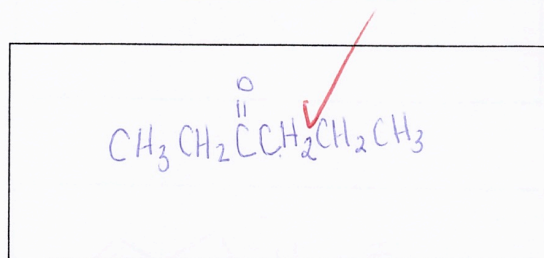 O
||
CH₃CH₂CCH₂CH₂CH₃